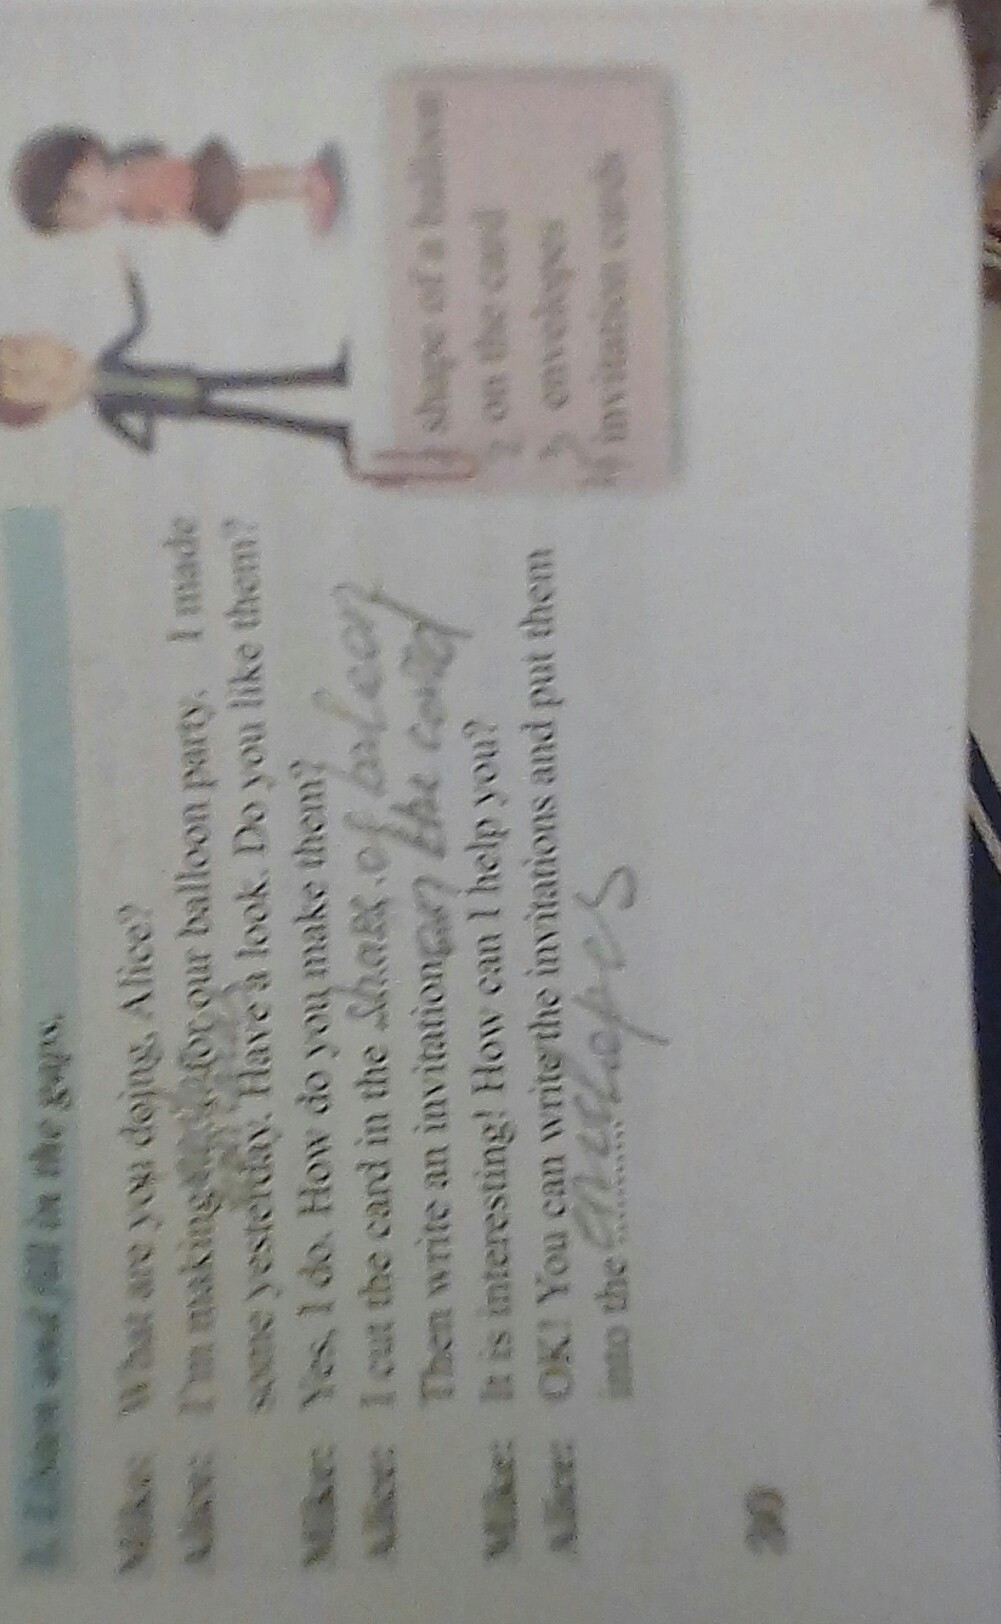 Listen and fill in the gaps.
Mike: What are you doing, Alice?
Alice: I'm making for our balloon party. I made
some yesterday. Have a look. Do you like them?
Mike: Yes, I do. How do you make them?
Alice: I cut the card in the shape of baleon
Then write an invitation on the card
Mike: It is interesting! How can I help you?
Alice: OK! You can write the invitations and put them
into the envelopes
1 shape of a balloon
2 on the card
3 envelopes
4 invitation cards
30